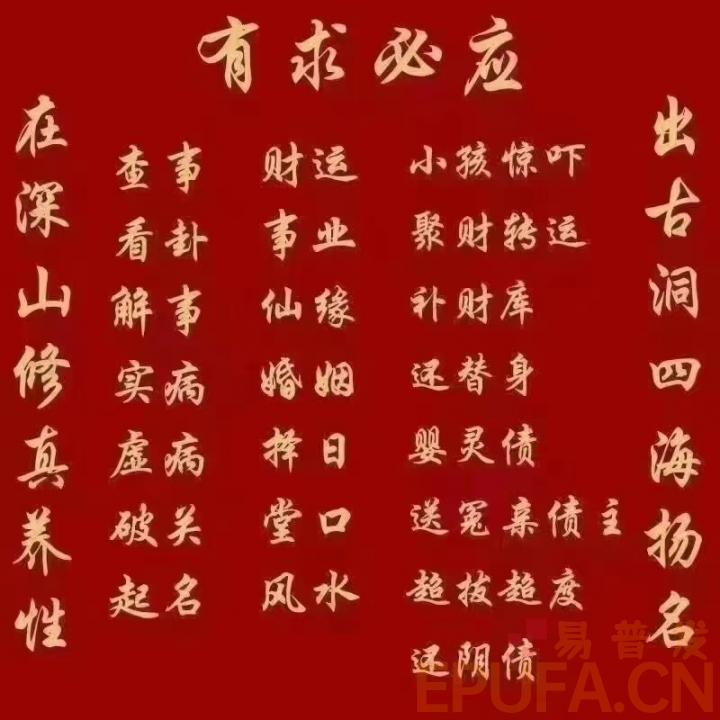 有求必应
在深山修真养性
查事
看卦
解事
实病
虚病
破关
起名
财运
事业
仙缘
婚姻
择日
堂口
风水
小孩惊吓
聚财转运
补财库
还替身
婴灵债
送冤亲债主
超拔超度
还阴债
出古洞四海扬名
易普发
EPUFA.CN